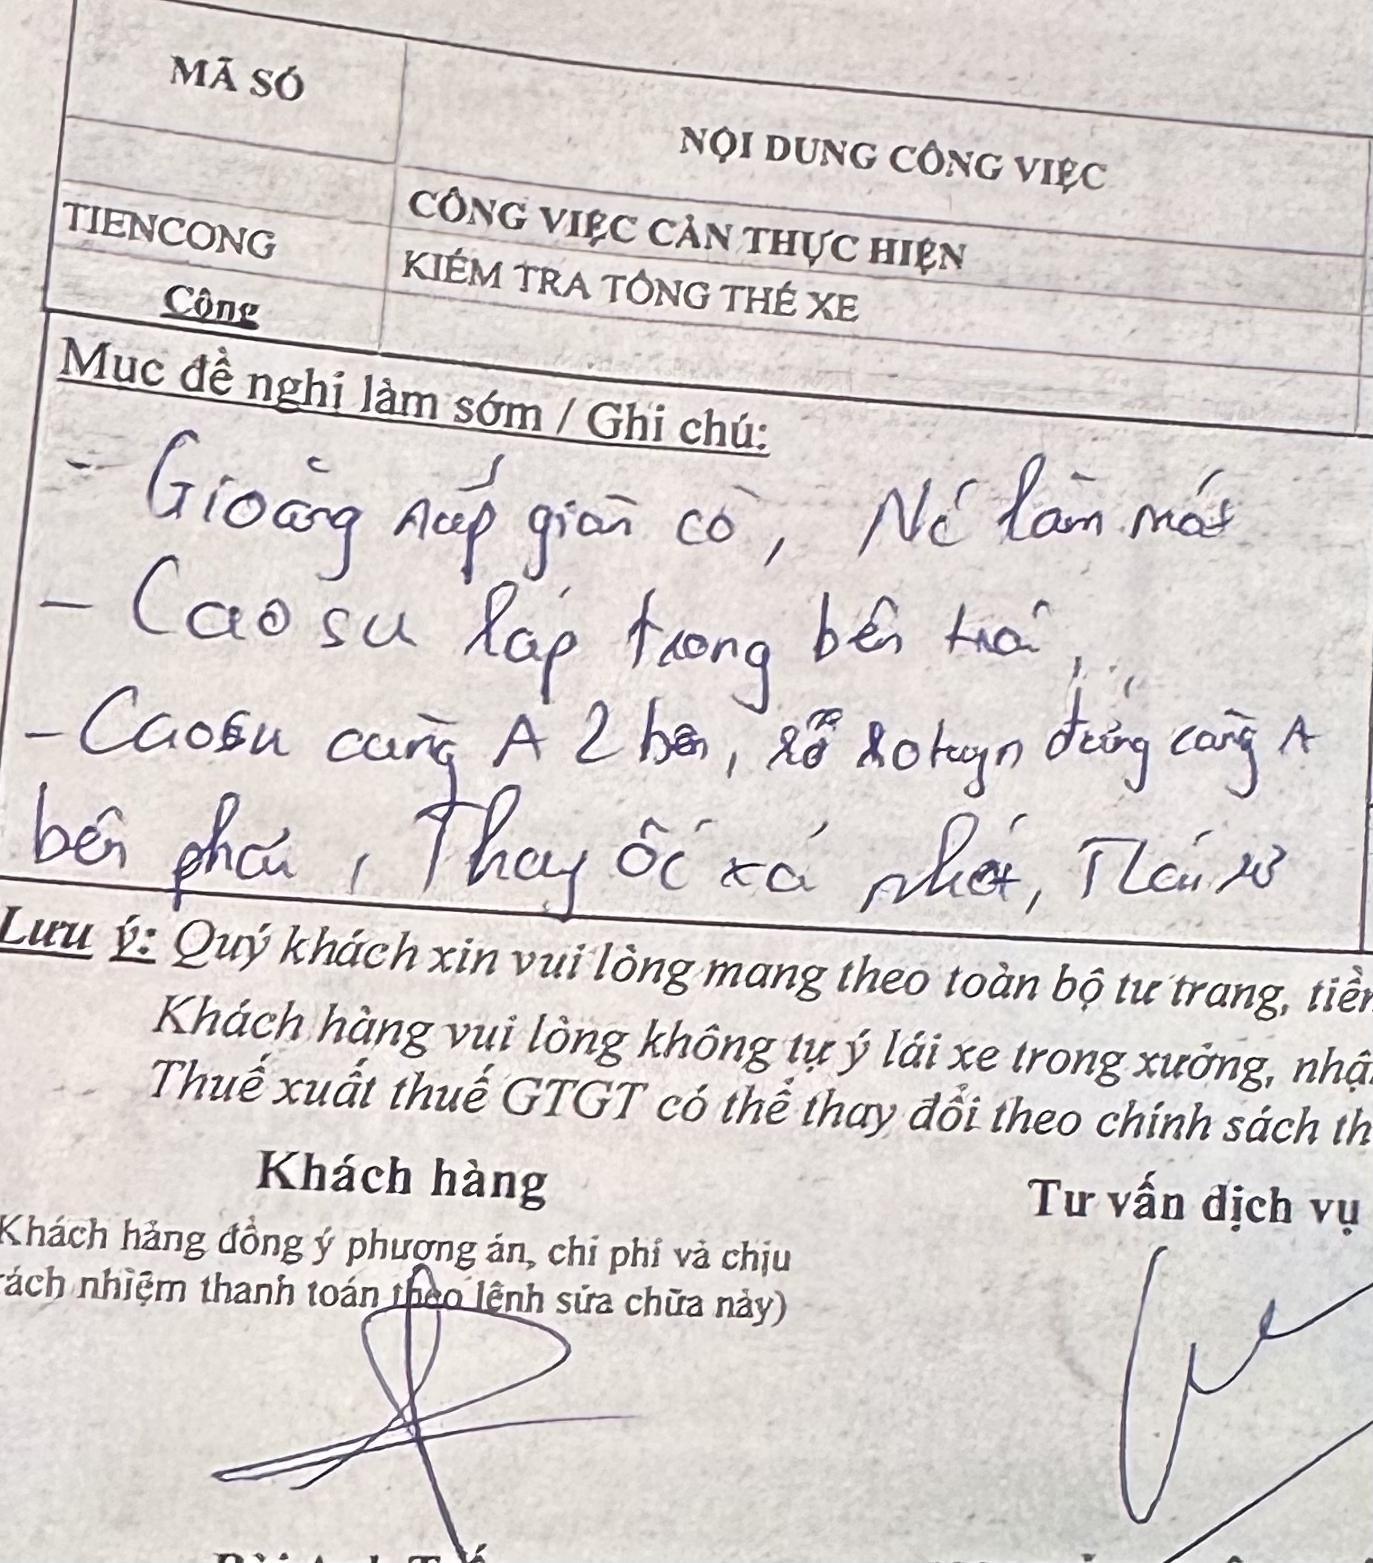 MÃ SỐ
NỘI DUNG CÔNG VIỆC
CÔNG VIỆC CẦN THỰC HIỆN
TIENCONG
KIỂM TRA TỔNG THỂ XE
Cộng
Mục đề nghị làm sớm / Ghi chú:
- Gioăng nắp giàn cò, Két làm mát
- Cao su láp trong bên trái,
- Caosu càng A 2 bên, rô tuyn đứng càng A
bên phải, Thay ốc xả nhớt, Tái xe
Lưu ý: Quý khách xin vui lòng mang theo toàn bộ tư trang, tiền
Khách hàng vui lòng không tự ý lái xe trong xưởng,
Thuế xuất thuế GTGT có thể thay đổi theo chính sách
Khách hàng
Tư vấn dịch vụ
Khách hàng đồng ý phương án, chi phí và chịu
nhiệm thanh toán theo lệnh sửa chữa này)